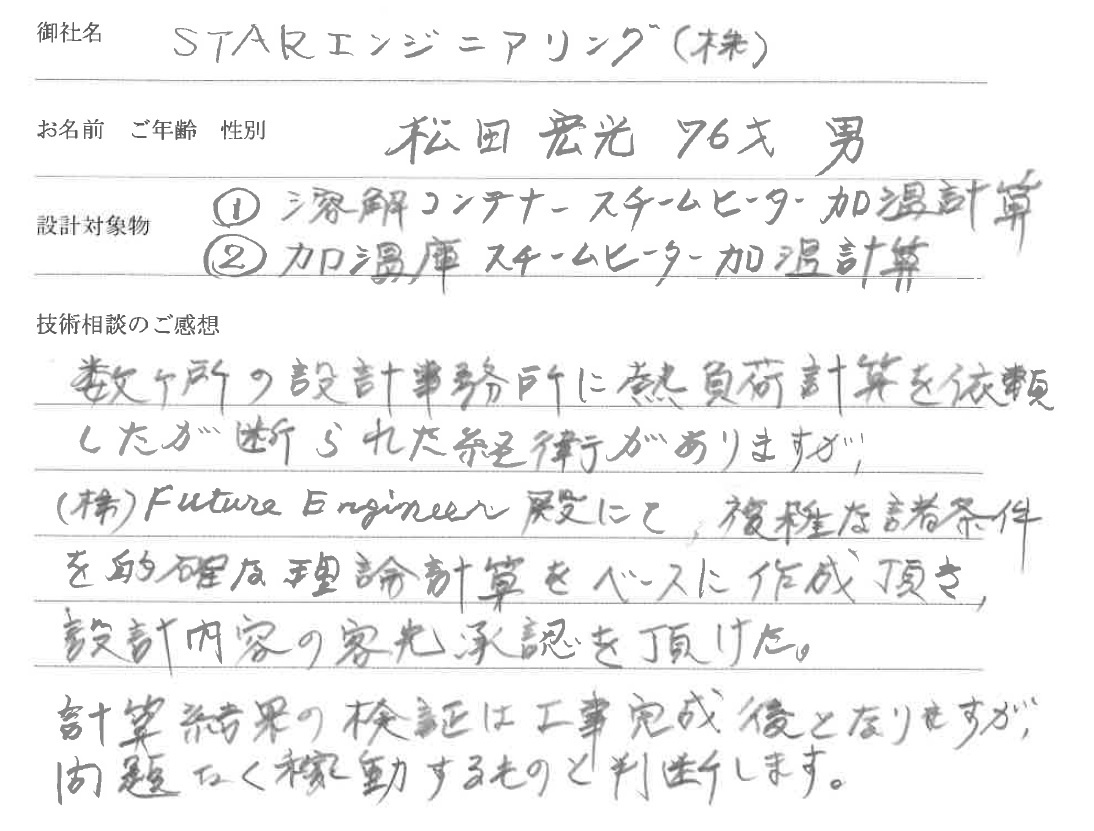 御社名 STARエンジニアリング(株)
お名前 ご年齢 性別 松田宏光 76才 男
設計対象物 ① 溶解コンテナー スチームヒーター加温計算
② 加温庫 スチームヒーター加温計算
技術相談のご感想
数ヶ所の設計事務所に熱負荷計算を依頼
したが断られた経緯がありますが、
(株)Future Engineer 殿にて、複種な諸条件
を的確な理論計算をベースに作成頂き、
設計内容の客先承認を頂けた。
計算結果の検証は工事完成後となりますが、
問題なく稼動するものと判断します。